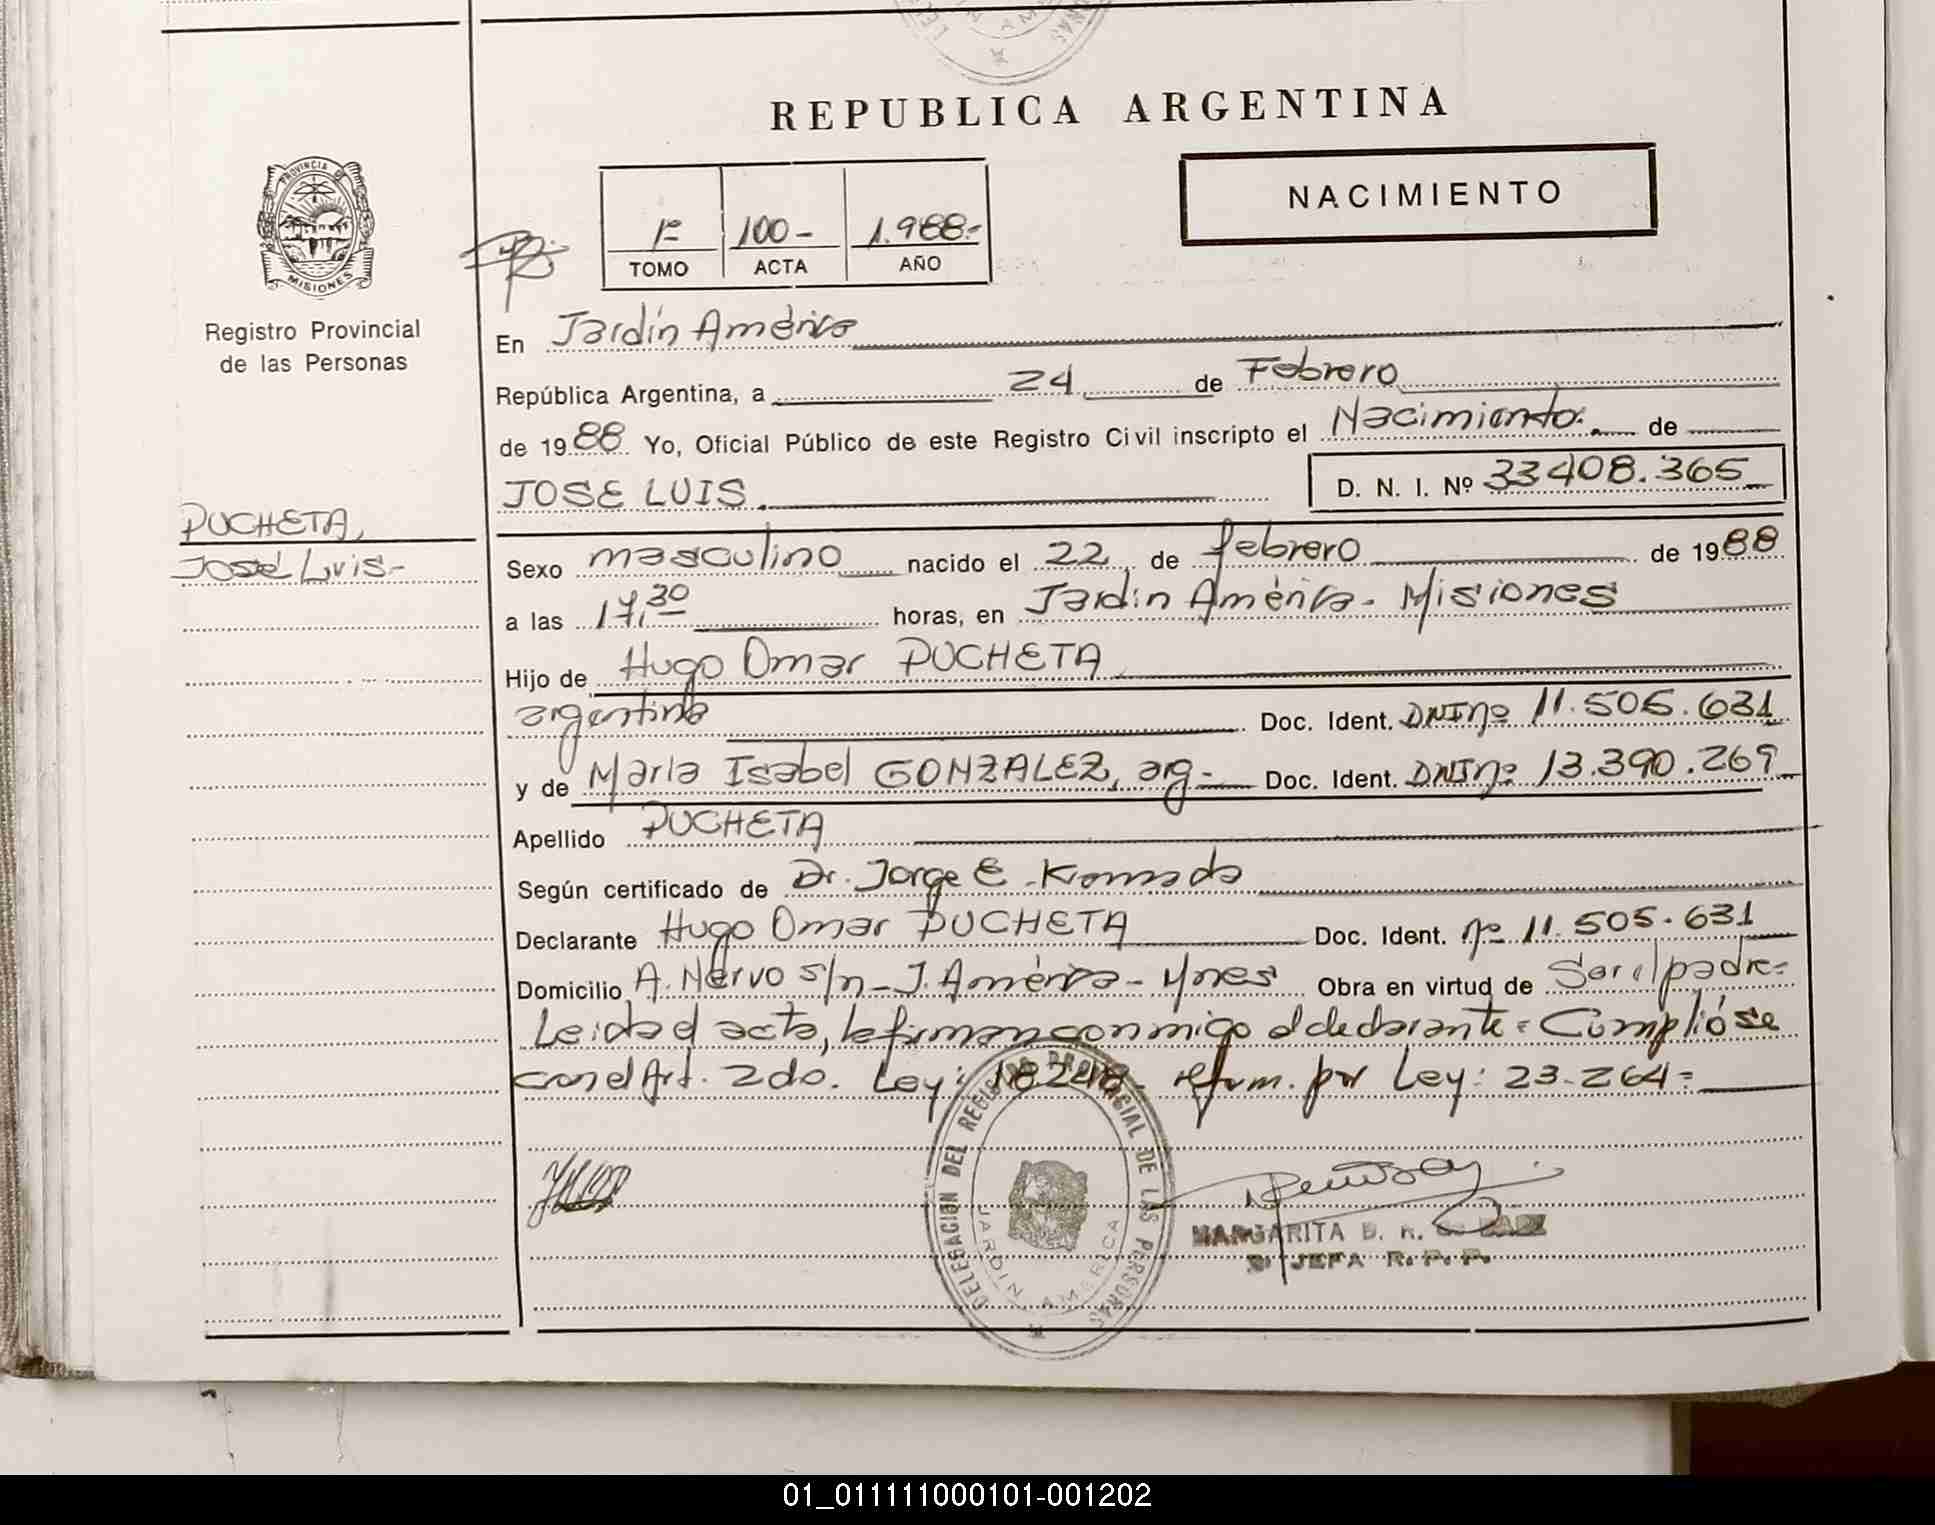 REPUBLICA ARGENTINA
PROVINCIA DE
MISIONES
Registro Provincial
de las Personas
NACIMIENTO
1º 100- 1.988.-
TOMO ACTA AÑO
En Jardín América
República Argentina, a 24 de Febrero
de 1988 Yo, Oficial Público de este Registro Civil inscripto el Nacimiento. de
JOSE LUIS. D. N. I. Nº 33408.365
PUCHETA,
José Luis.-
Sexo masculino nacido el 22 de febrero de 1988
a las 17,30 horas, en Jardín América. Misiones
Hijo de Hugo Omar PUCHETA
argentino Doc. Ident. DNI nº 11.505.631
y de María Isabel GONZALEZ, arg.- Doc. Ident. DNI nº 13.390.269
Apellido PUCHETA
Según certificado de Dr. Jorge E.
Declarante Hugo Omar PUCHETA Doc. Ident. nº 11.505.631
Domicilio A. Nervo s/n - J. América - Mnes Obra en virtud de Ser el padre=
Leida el acta, la firman conmigo el declarante = Cumplióse
con el Art. 2do. Ley: 18248 - reform. por Ley: 23.264=
DELEGACION DEL REGISTRO PROVINCIAL DE LAS PERSONAS
JARDIN AMERICA
MARGARITA B. R. de
JEFA R. P. P.
01_011111000101-001202